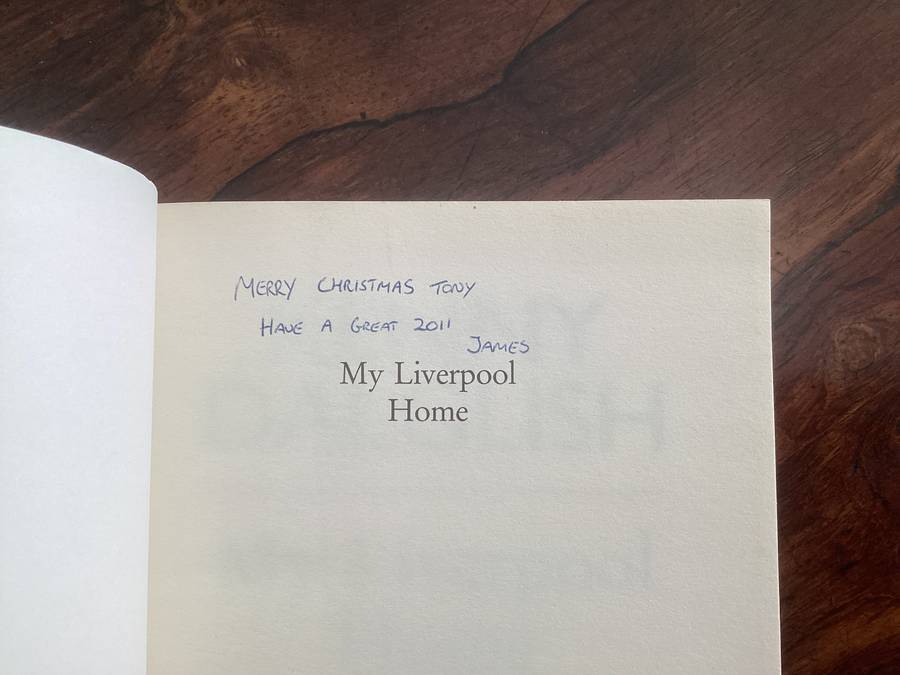 MERRY CHRISTMAS TONY
HAVE A GREAT 2011
JAMES
My Liverpool
Home